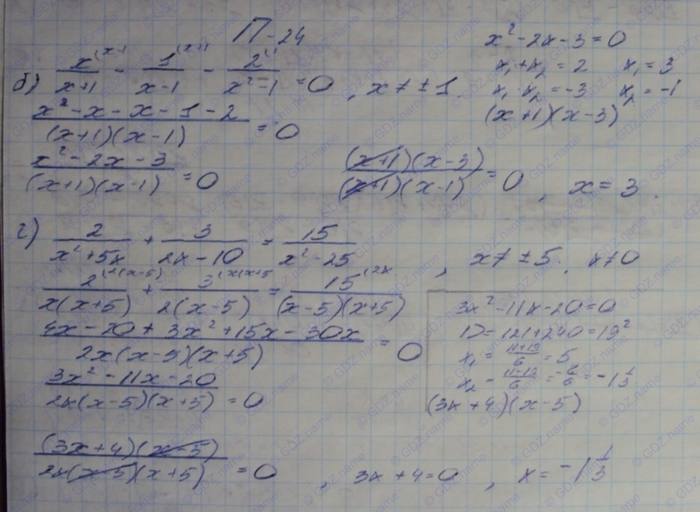 П-24
б) x/(x+1) ^(x-1) - 1/(x-1) ^(x+1) - 2/(x²-1) ^(1) = 0, x ≠ ±1.
(x² - x - x - 1 - 2)/((x+1)(x-1)) = 0
(x² - 2x - 3)/((x+1)(x-1)) = 0
x² - 2x - 3 = 0
x₁ + x₂ = 2 x₁ = 3
x₁ · x₂ = -3 x₂ = -1
(x+1)(x-3)
((x+1)(x-3))/((x+1)(x-1)) = 0, x = 3.
г) 2/(x²+5x) + 3/(2x-10) = 15/(x²-25), x ≠ ±5. x ≠ 0
2/(x(x+5)) ^(2(x-5)) + 3/(2(x-5)) ^(x(x+5) = 15/((x-5)(x+5)) ^(2x
(4x - 20 + 3x² + 15x - 30x)/(2x(x-5)(x+5)) = 0
(3x² - 11x - 20)/(2x(x-5)(x+5)) = 0
3x² - 11x - 20 = 0
D = 121 + 240 = 19²
x₁ = (11+19)/6 = 5
x₂ = (11-19)/6 = -8/6 = -1 1/3
(3x+4)(x-5)
((3x+4)(x-5))/(2x(x-5)(x+5)) = 0, 3x + 4 = 0, x = -1 1/3
© GDZ.name